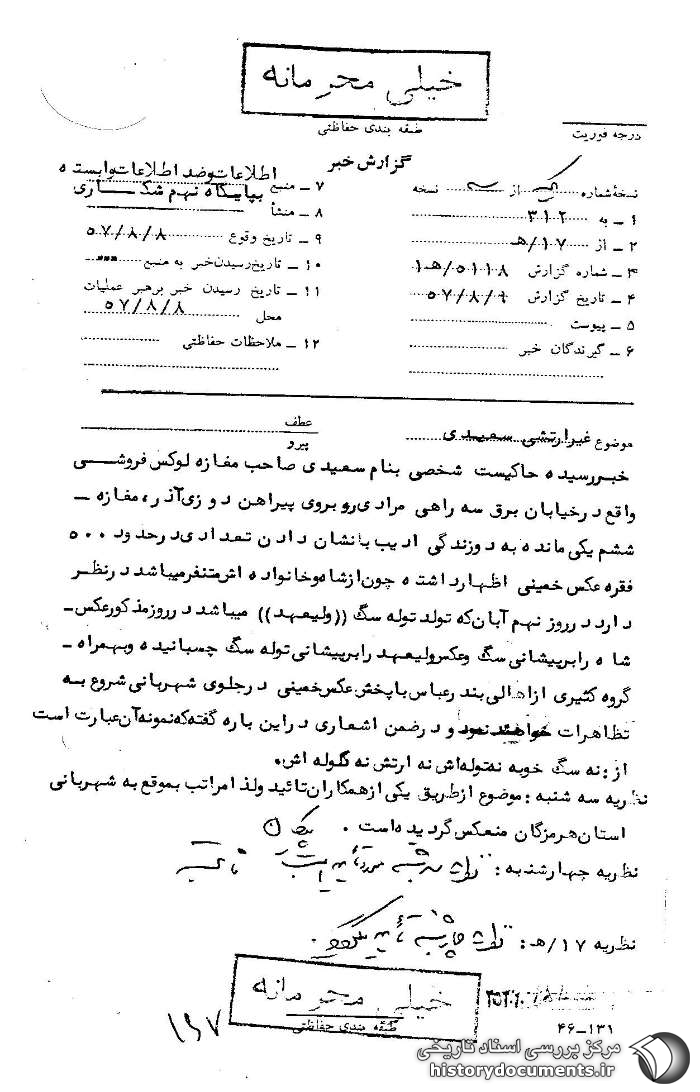 خیلی محرمانه
طبقه بندی حفاظتی
درجه فوریت
گزارش خبر
نسخهٔ شماره از سه نسخه
۱ - به ۳۱۲
۲ - از ۱۷/هـ
۳ - شماره گزارش ۵۱۱۸/هـ۱
۴ - تاریخ گزارش ۵۷/۸/۹
۵ - پیوست
۶ - گیرندگان خبر
۷ - منبع اطلاعات وضد اطلاعات وابسته
بپایگاه نهم شکاری
۸ - منشأ
۹ - تاریخ وقوع ۵۷/۸/۸
۱۰ - تاریخ رسیدن خبر به منبع
۱۱ - تاریخ رسیدن خبر برهبر عملیات
محل ۵۷/۸/۸
۱۲ - ملاحظات حفاظتی
موضوع غیرارتشی سعیدی
عطف
پیرو
خبررسیده حاکیست شخصی بنام سعیدی صاحب مغازه لوکس فروشی
واقع درخیابان برق سه راهی مرادی روبروی پیراهن دوزی آذر، مغازه -
ششم یکی مانده به دوزندگی ادیب بانشان دادن تعدادی درحدود ۵۰۰
فقره عکس خمینی اظهارداشته چون ازشاه وخانواده اش متنفرمیباشد درنظر
دارد درروز نهم آبان که تولد توله سگ ((ولیعهد)) میباشد درروزمذکورعکس -
شاه رابرپیشانی سگ وعکس ولیعهد رابرپیشانی توله سگ چسبانیده وبهمراه -
گروه کثیری ازاهالی بندرعباس باپخش عکس خمینی درجلوی شهربانی شروع به
تظاهرات خواهند نمود و درضمن اشعاری دراین باره گفته که نمونه آن عبارت است
از: نه سگ خوبه نه توله اش نه ارتش نه گلوله اش.
نظریه سه شنبه: موضوع ازطریق یکی ازهمکاران تائید ولذا مراتب بموقع به شهربانی
استان هرمزگان منعکس گردیده است.
نظریه چهارشنبه: نظریه سه شنبه مورد تأیید است
نظریه ۱۷/هـ: نظریه چهارشنبه تأیید میگردد.
خیلی محرمانه
طبقه بندی حفاظتی
۱۹۷
۴۶-۱۳۱
مرکز بررسی اسناد تاریخی
historydocuments.ir